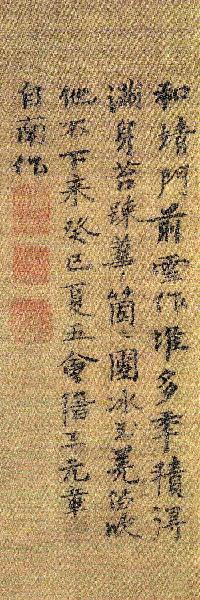 和靖門前雪作堆多秊積得
滿身苔疎華箇々團冰玉羌笛吹
他不下来癸巳夏五會稽王元章
自南作